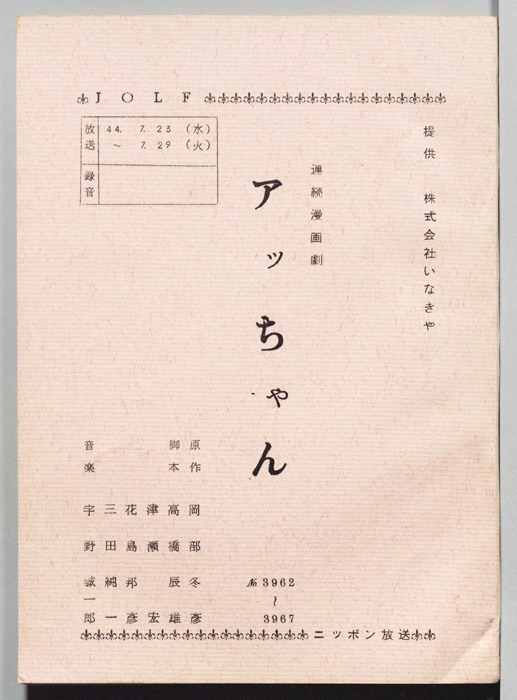 JOLF
放送 44. 7. 23 (水)
〜 7. 29 (火)
録音
提供 株式会社いなきや
連続漫画劇
アッちゃん
原作 岡部冬彦
脚本 高橋辰雄
津瀬宏
花島邦彦
三田純一
音楽 宇野誠一郎
№3962
〜
3967
ニッポン放送